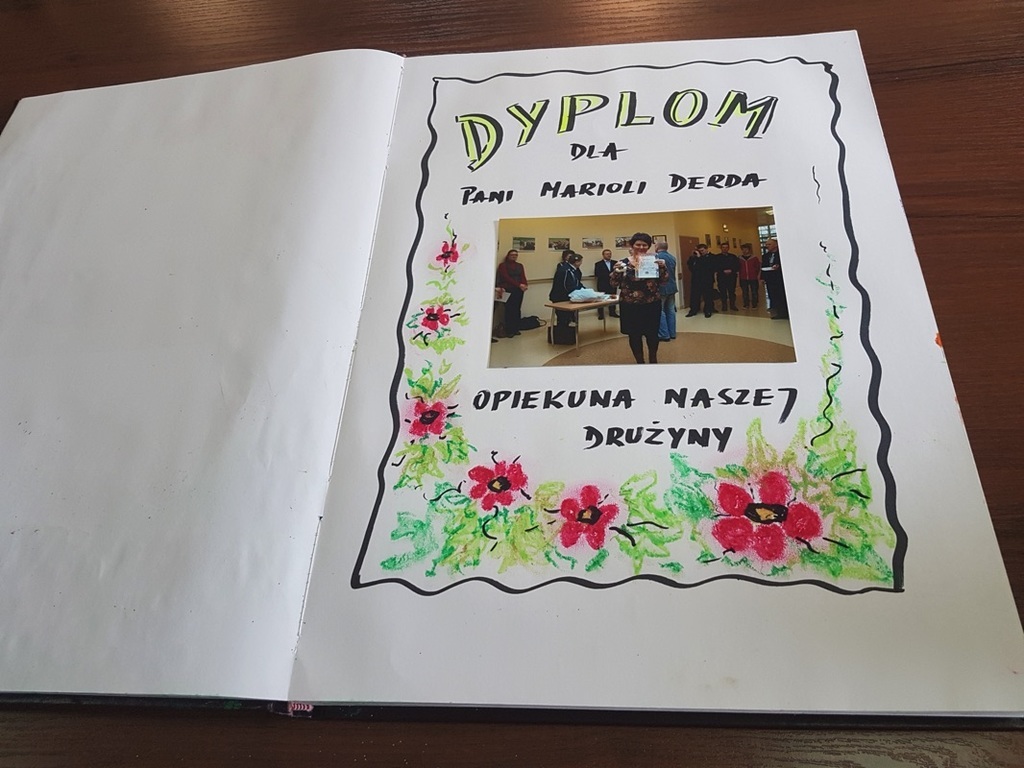 DYPLOM
DLA
PANI MARIOLI DERDA
OPIEKUNA NASZEJ
DRUŻYNY